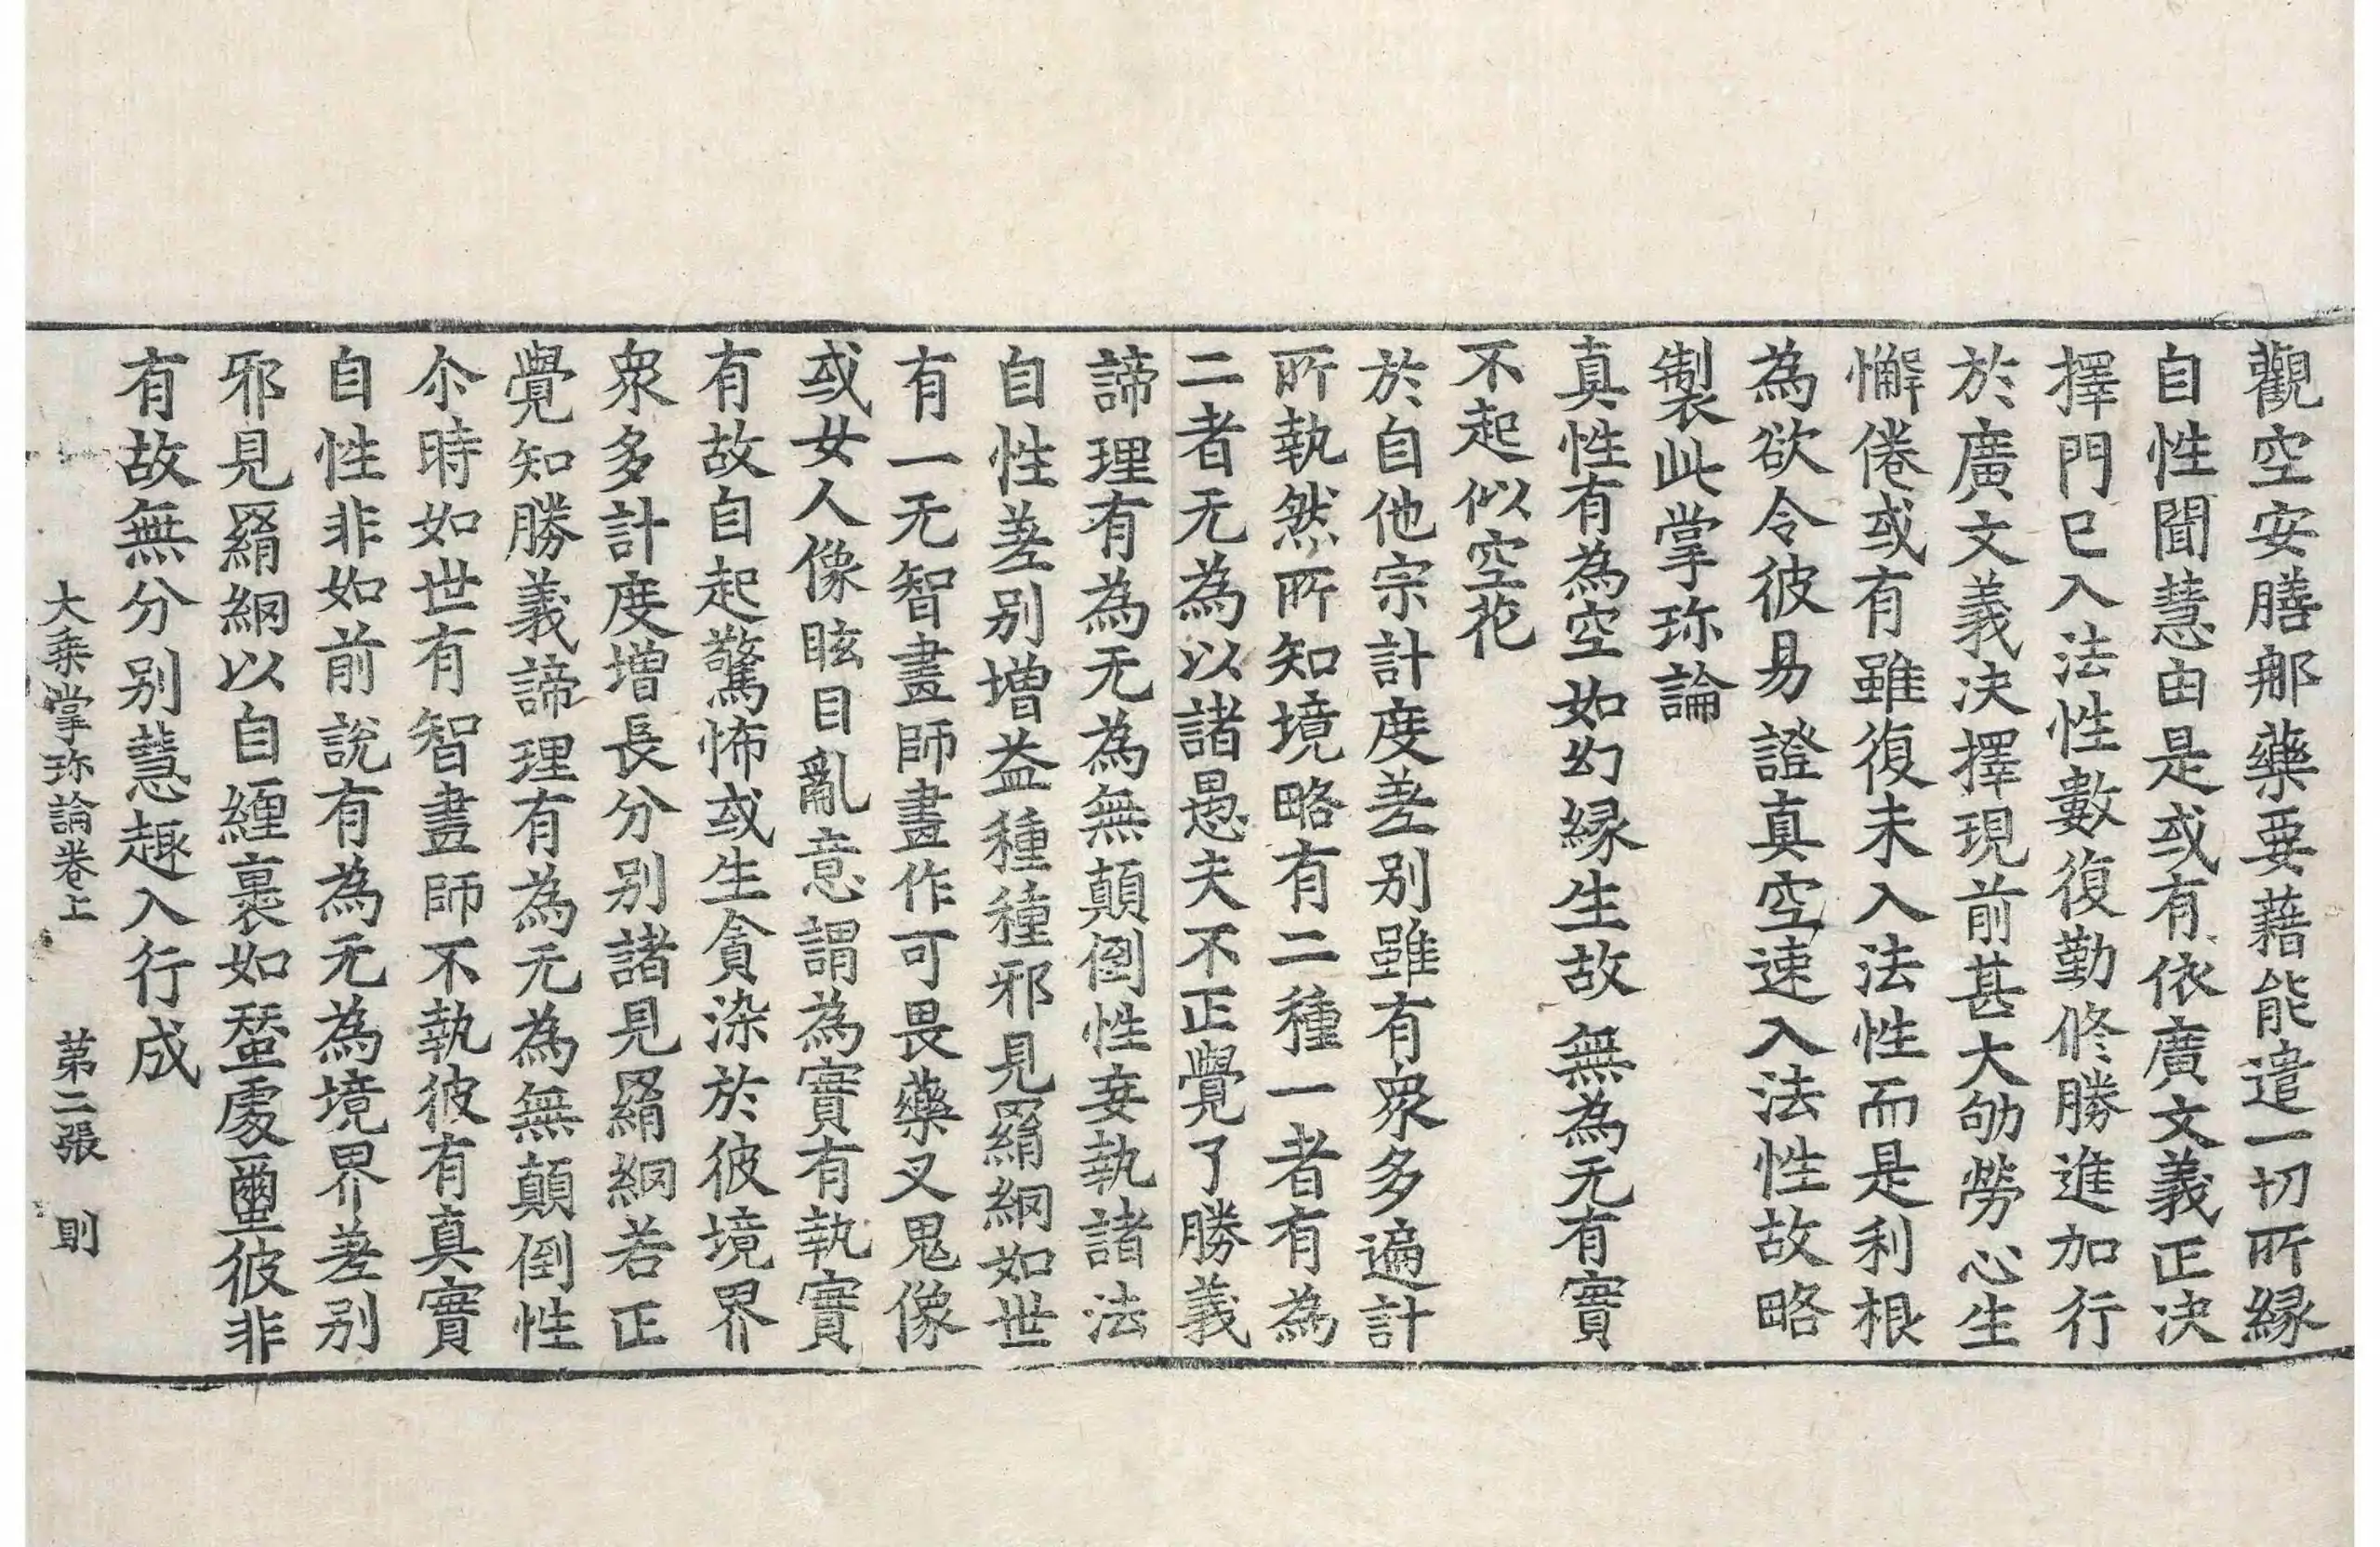 觀空安膳那藥要藉能遣一切所縁
自性聞慧由是或有依廣文義正决
擇門已入法性數復勤修勝進加行
於廣文義决擇現前甚大劬勞心生
懈倦或有雖復未入法性而是利根
為欲令彼易證真空速入法性故略
製此掌珎論
真性有為空如幻縁生故無為无有實
不起似空花
於自他宗計度差别雖有衆多遍計
所執然所知境略有二種一者有為
二者无為以諸愚夫不正覺了勝義
諦理有為无為無顛倒性妄執諸法
自性差别增益種種邪見羂網如世
有一无智畫師畫作可畏藥叉鬼像
或女人像眩目亂意謂為實有執實
有故自起驚怖或生貪染於彼境界
衆多計度增長分别諸見羂網若正
覺知勝義諦理有為无為無顛倒性
尒時如世有智畫師不執彼有真實
自性非如前說有為无為境界差别
邪見羂網以自纒裹如蝅處𠅫彼非
有故無分别慧趣入行成
大乘掌珎論卷上 第二張 則